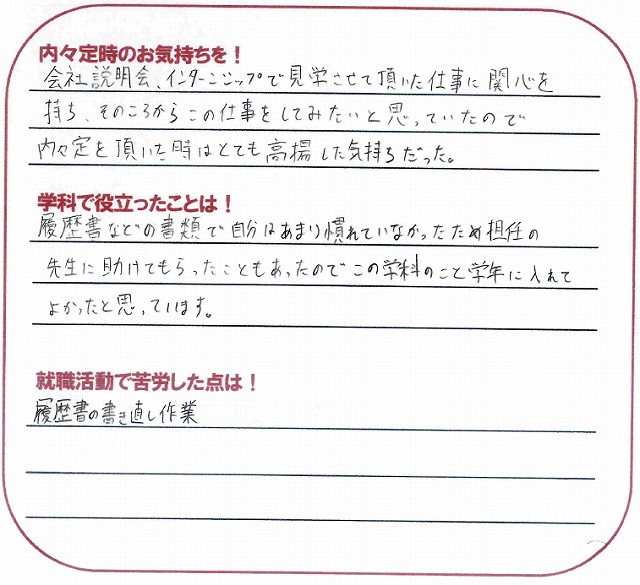 内々定時のお気持ちを！
会社説明会、インターンシップで見学させて頂いた仕事に関心を
持ち、そのころからこの仕事をしてみたいと思っていたので
内々定を頂いた時はとても高揚した気持ちだった。
学科で役立ったことは！
履歴書などの書類で自分はあまり慣れていなかったため担任の
先生に助けてもらったこともあったのでこの学科のこと学年に入れて
よかったと思っています。
就職活動で苦労した点は！
履歴書の書き直し作業